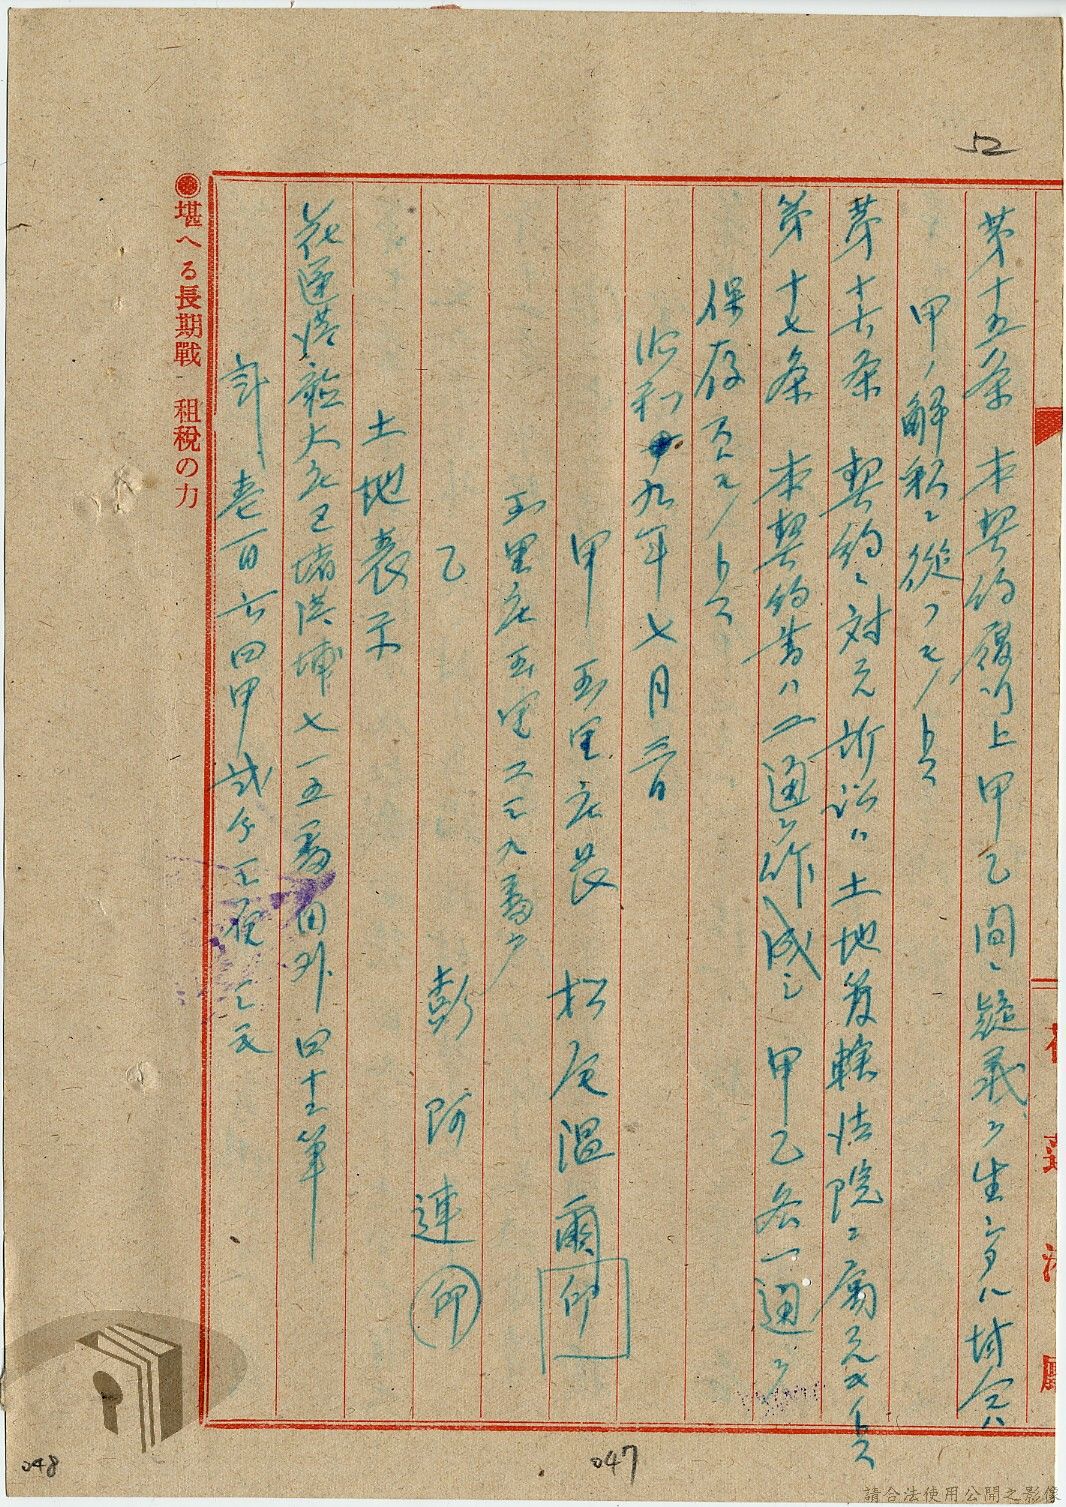 52
第十五条 本契約履行上甲乙間ニ疑義ヲ生シタル場合ハ
甲ノ解釈ニ従フモノトス
第十六条 契約ニ対スル訴訟ハ土地管轄法院ニ属スルモノトス
第十七条 本契約書ハ二通ヲ作成シ甲乙各一通ヲ
保存スルモノトス
昭和十九年七月三日
甲 玉里庄長 松尾温爾 印
玉里庄玉里二三九番戸
乙 彭阿連 印
土地表示
花蓮港廳 七一五番田外四十三筆
計壱百六四甲
●堪へる長期戰 租税の力
花蓮港廳
048
047
請合法使用公開之影像